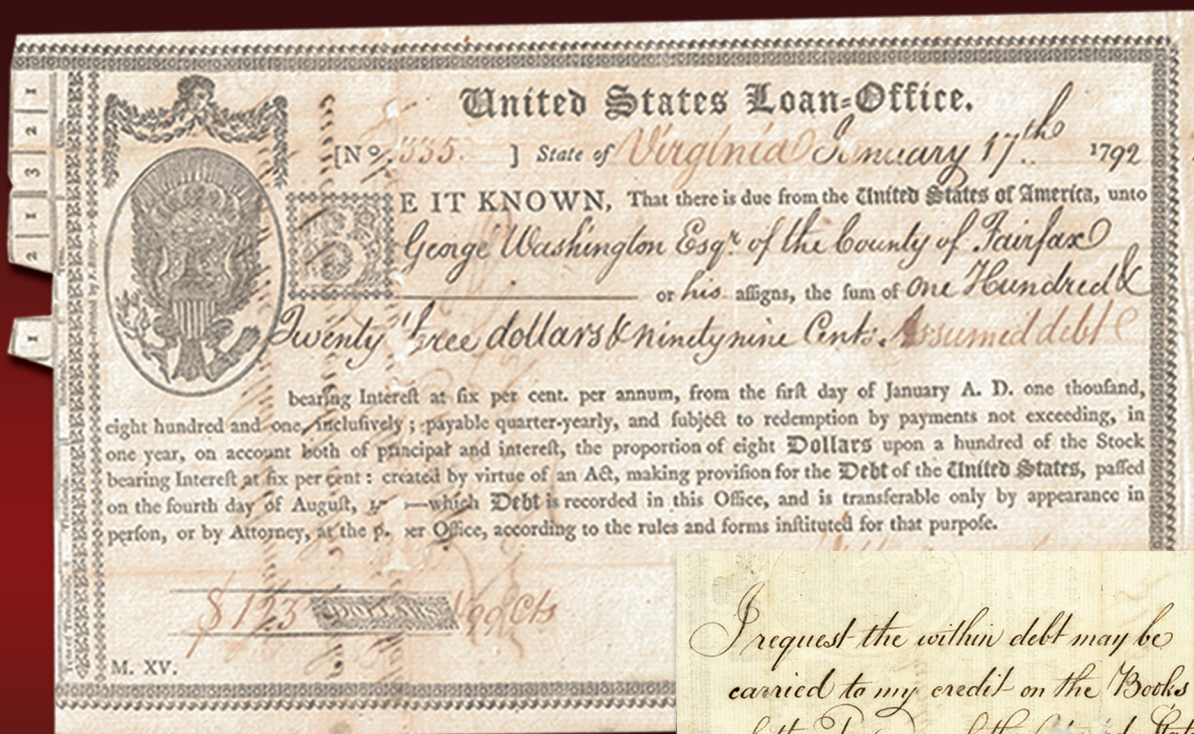 United States Loan-Office.
[No. 335 ] State of Virginia January 17th 1792
BE IT KNOWN, That there is due from the United States of America, unto
George Washington Esqr of the County of Fairfax
or his assigns, the sum of one Hundred &
Twenty three dollars & ninety nine Cents. Assumed debt
bearing Interest at six per cent. per annum, from the first day of January A. D. one thousand,
eight hundred and one, inclusively ; payable quarter-yearly, and subject to redemption by payments not exceeding, in
one year, on account both of principal and interest, the proportion of eight Dollars upon a hundred of the Stock
bearing Interest at six per cent : created by virtue of an Act, making provision for the Debt of the United States, passed
on the fourth day of August, —which Debt is recorded in this Office, and is transferable only by appearance in
person, or by Attorney, at the Office, according to the rules and forms instituted for that purpose.
$123 DOLLARS 99 Cts
M. XV.
I request the within debt may be
carried to my credit on the Books
1
2
3
1
2
1